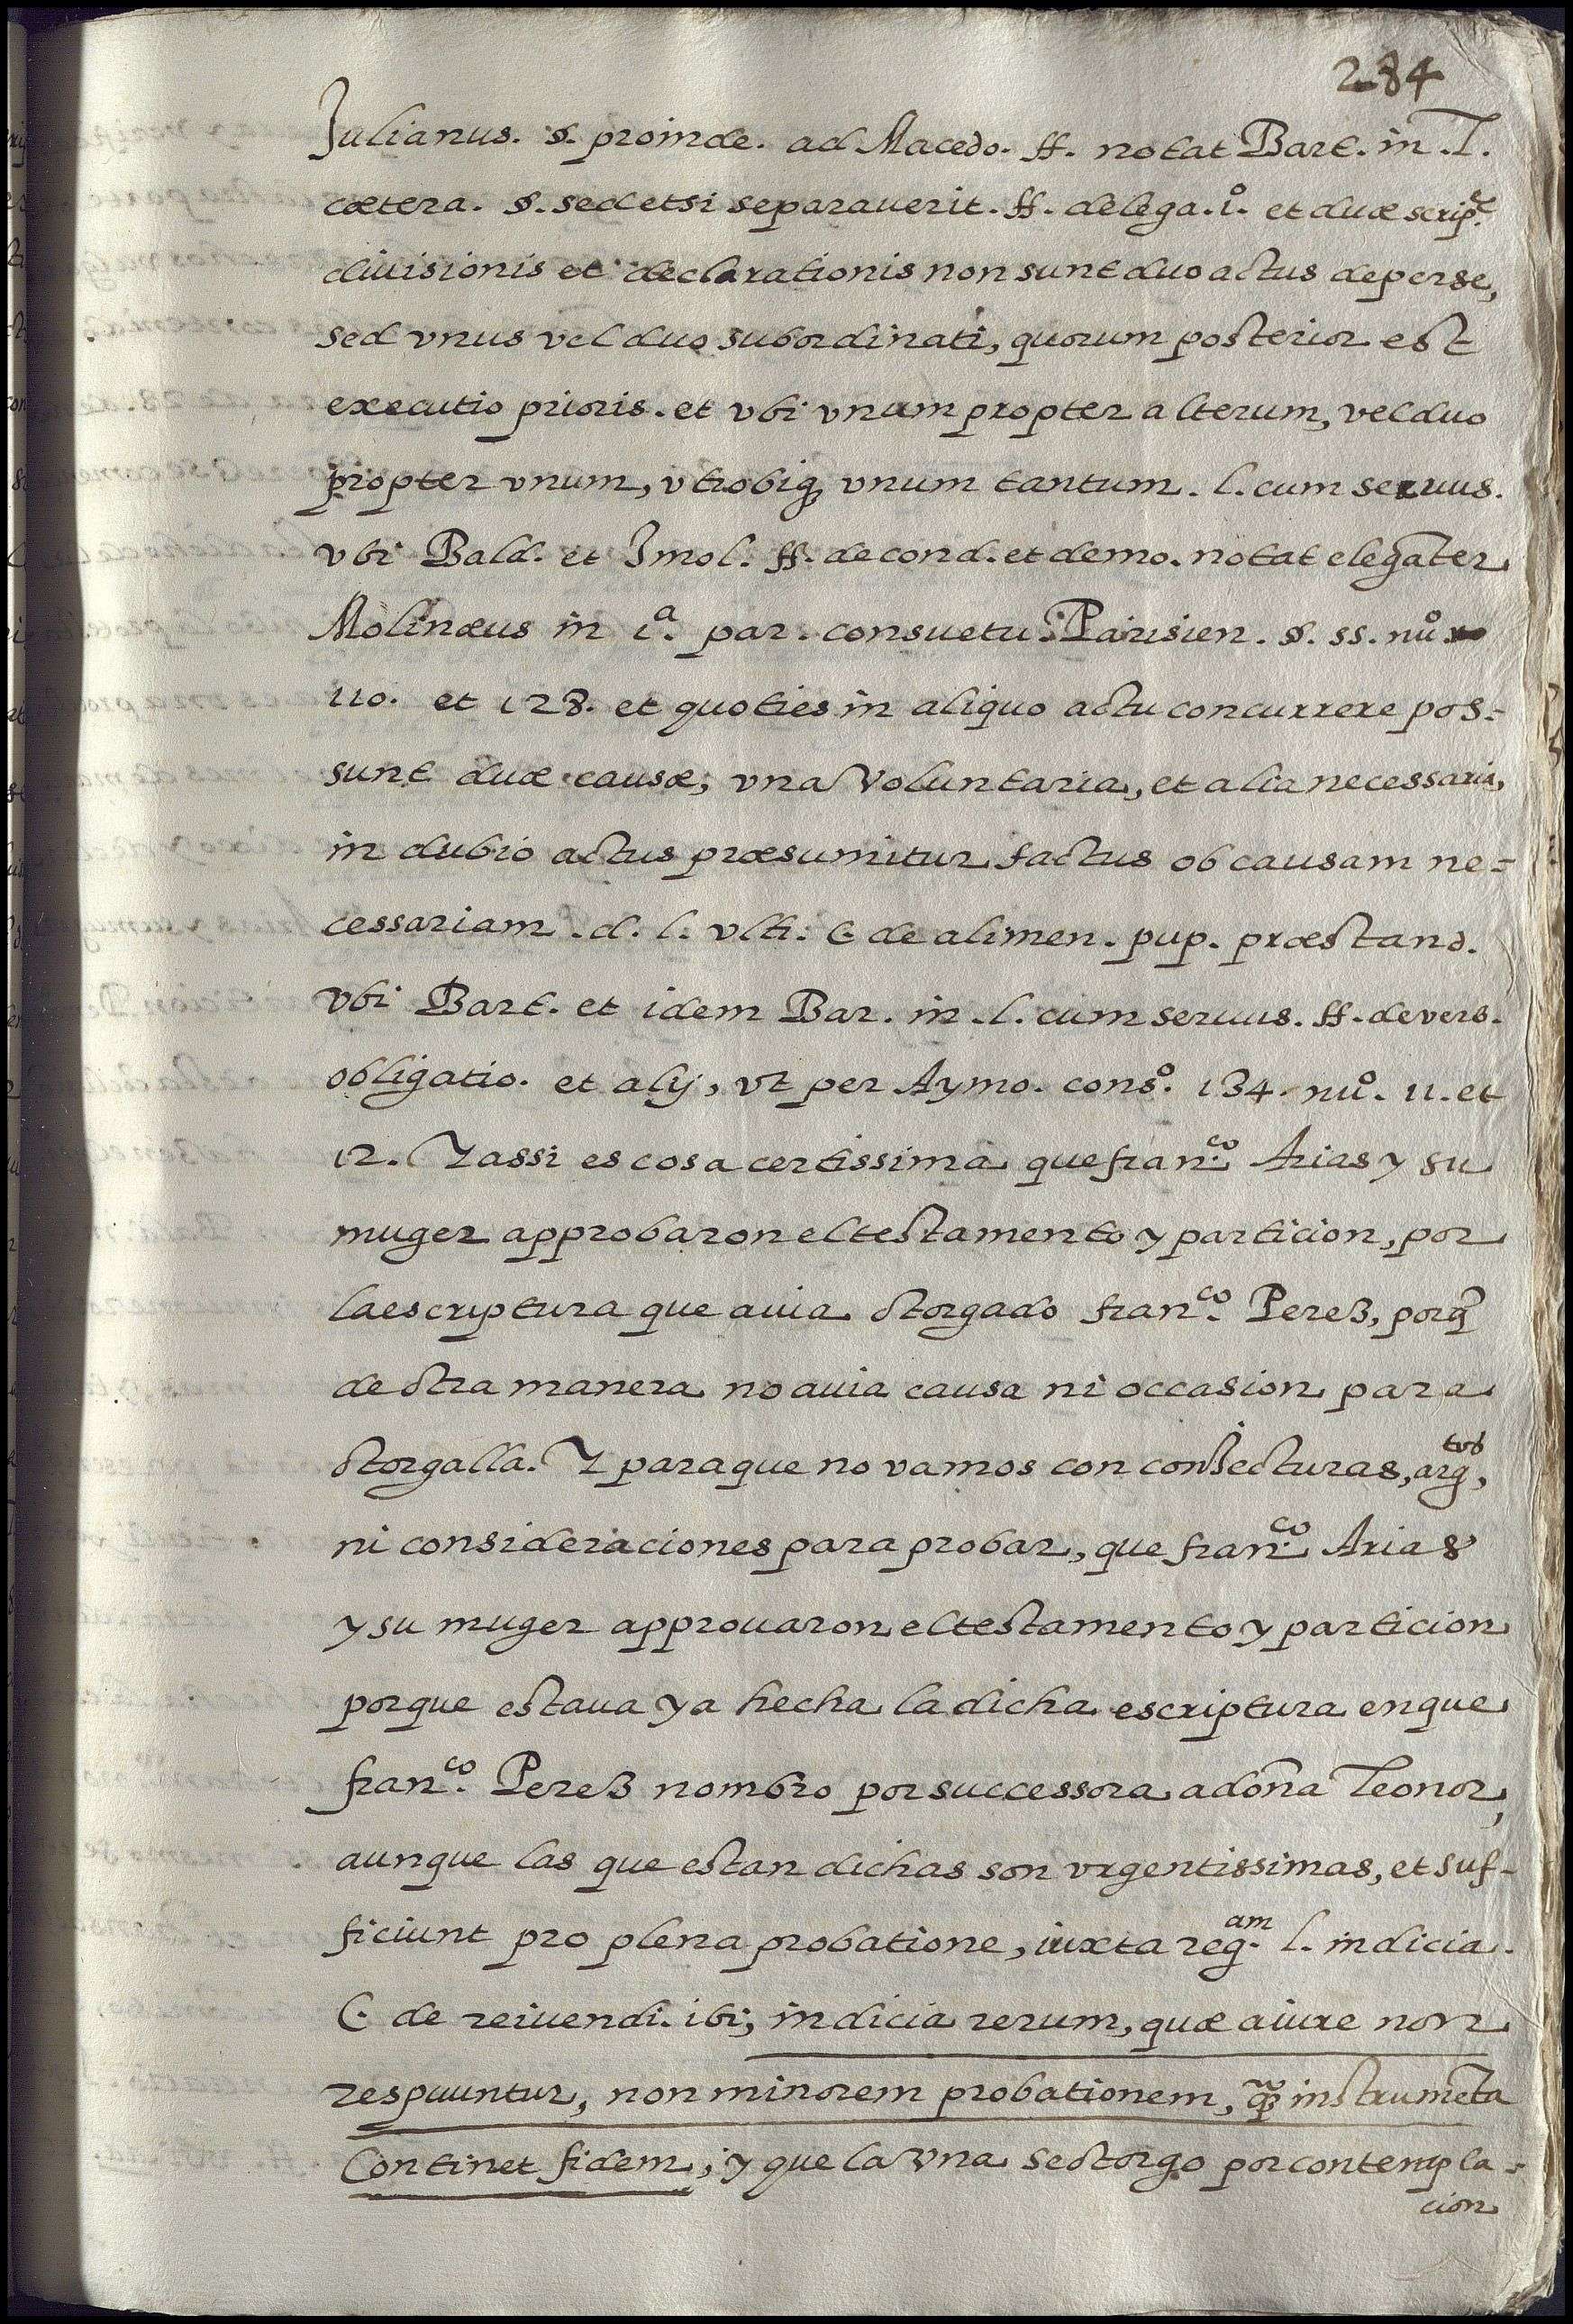 284
Julianus. §. proinde. ad Macedo. ff. notat Bart. in. l.
cætera. §. sed etsi separauerit. ff. de lega. i.º et duæ scrip.ᵉ
diuisionis et declarationis non sunt duo actus de per se,
sed vnus vel duo subordinati, quorum posterior est
executio prioris. et vbi vnum propter alterum, vel duo
propter vnum, vtrobiq₃ vnum tantum. l. cum seruus.
vbi Bald. et Imol. ff. de cond. et demo. notat elegāter
Molinæus in 1.ª par. consuetu. Parisien. §. 55. nu.º
110. et 128. et quoties in aliquo actu concurrere pos=
sunt duæ causæ, vna voluntaria, et alia necessaria,
in dubio actus præsumitur factus ob causam ne=
cessariam. d. l. vlti. C. de alimen. pup. præstand.
vbi Bart. et idem Bar. in. l. cum seruus. ff. de verb.
obligatio. et alij, vt per Aymo. cons.º 134. nu.º 11. et
12. Y assi es cosa certissima que fran.co Arias y su
muger approbaron el testamento y particion, por
la escriptura que auia otorgado fran.co Perez, porq̃
de otra manera no auia causa ni occasion para
otorgalla. Y para que no vamos con conjecturas, arg.tos,
ni consideraciones para probar, que fran.co Arias
y su muger approuaron el testamento y particion
porque estaua ya hecha la dicha escriptura en que
fran.co Perez nombro por successora a doña Leonor,
aunque las que estan dichas son vrgentissimas, et suf-
ficiunt pro plena probatione, iuxta reg.am l. indicia.
C. de rei uendi. ibi, indicia rerum, quæ a iure non
respuuntur, non minorem probationem, quã instrumēta
Continet fidem, y que la vna se otorgo por contempla=
cion